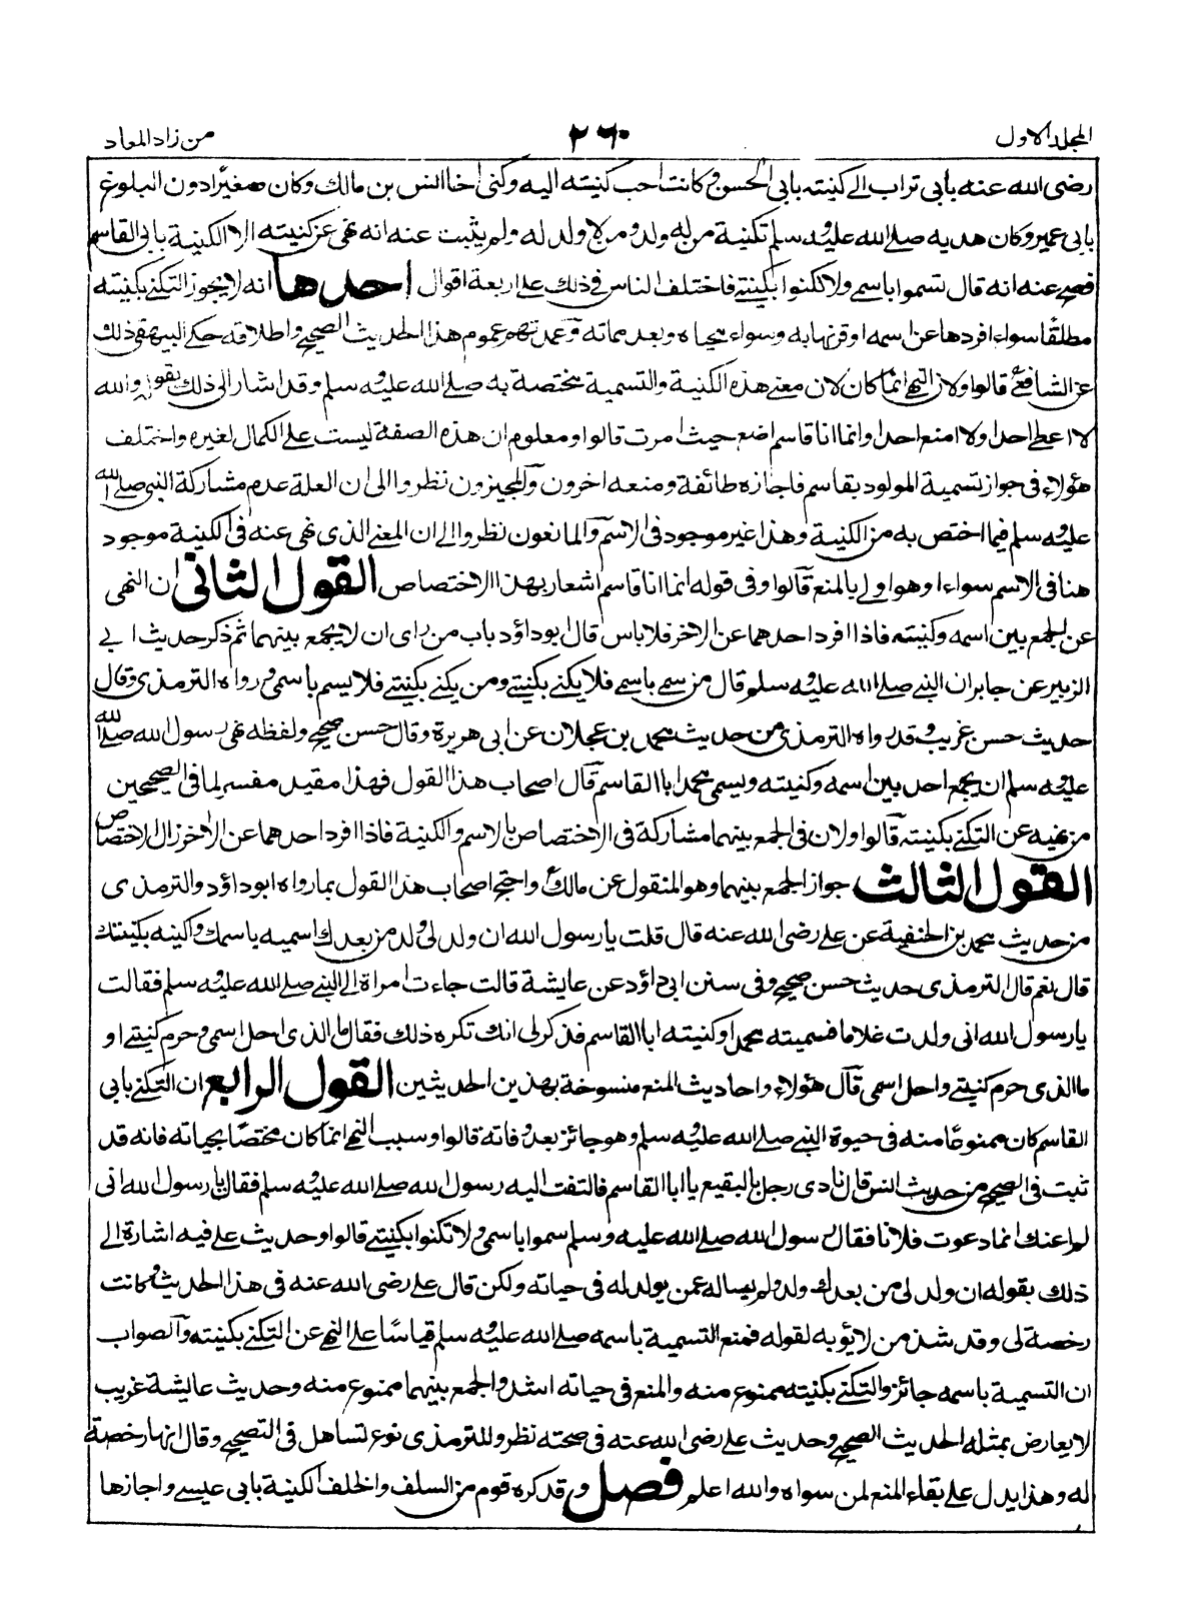 المجلد الاول
٢٦٠
من زاد المعاد
رضی الله عنه بابی تراب الی کنیته بابی الحسن وکانت احب کنیته الیه وکنی اخا انس بن مالك وکان صغیرا دون البلوغ
بابی عمیر وکان هدیه صلی الله علیه وسلم تکنیة من له ولد ومن لا ولد له ولم یثبت عنه انه نهی عن کنیته الا الکنیة بابی القاسم
فصح عنه انه قال تسموا باسمی ولا تکنوا بکنیتی فاختلف الناس فی ذلك علی اربعة اقوال احدها انه لا یجوز التکنی بکنیته
مطلقًا سواء افردها عن اسمه او قرنها به وسواء محیاه وبعد مماته وعمدتهم عموم هذا الحدیث الصحیح واطلاقه حکی البیهقی ذلك
عن الشافعی قالوا ولان النهی انما کان لان معنی هذه الکنیة والتسمیة مختصة به صلی الله علیه وسلم وقد اشار الی ذلك بقوله والله
لا اعطی احدا ولا امنع احدا وانما انا قاسم اضع حیث امرت قالوا ومعلوم ان هذه الصفة لیست علی الکمال لغیره واختلف
هؤلاء فی جواز تسمیة المولود بقاسم فاجازه طائفة ومنعه اخرون والمجیزون نظروا الی ان العلة عدم مشارکة النبی صلی الله
علیه سلم فیما اختص به من الکنیة وهذا غیر موجود فی الاسم والمانعون نظروا الی ان المعنی الذی نهی عنه فی الکنیة موجود
هنا فی الاسم سواء او هو اولی بالمنع قالوا وفی قوله انما انا قاسم اشعار بهذا الاختصاص القول الثانی ان النهی
عن الجمع بین اسمه وکنیته فاذا افرد احدهما عن الاخر فلا باس قال ابوداؤد باب من رای ان لا یجمع بینهما ثم ذکر حدیث ابی
الزبیر عن جابر ان النبی صلی الله علیه وسلم قال من سمی باسمی فلا یکنی بکنیتی ومن یکنی بکنیتی فلا یسم باسمی ورواه الترمذی وقال
حدیث حسن غریب وقد رواه الترمذی من حدیث محمد بن عجلان عن ابی هریرة وقال حسن صحیح ولفظه نهی رسول الله صلی الله
علیه وسلم ان یجمع احد بین اسمه وکنیته ویسمی محمدا ابا القاسم قال اصحاب هذا القول فهذا مقید مفسر لما فی الصحیحین
من نهیه عن التکنی بکنیته قالوا ولان فی الجمع بینهما مشارکة فی الاختصاص بالاسم والکنیة فاذا افرد احدهما عن الاخر زال الاختصاص
القول الثالث جواز الجمع بینهما وهو المنقول عن مالك واحتج اصحاب هذا القول بما رواه ابوداؤد والترمذی
من حدیث محمد بن الحنفیة عن علی رضی الله عنه قال قلت یا رسول الله ان ولد لی ولد من بعدك اسمیه باسمك واکنیه بکنیتك
قال نعم قال الترمذی حدیث حسن صحیح وفی سنن ابی داؤد عن عایشة قالت جاءت امراة الی النبی صلی الله علیه وسلم فقالت
یا رسول الله انی ولدت غلاما فسمیته محمدا وکنیته ابا القاسم فذکر لی انك تکره ذلك فقال ما الذی احل اسمی وحرم کنیتی او
ما الذی حرم کنیتی واحل اسمی قال هؤلاء واحادیث المنع منسوخة بهذین الحدیثین القول الرابع ان التکنی بابی
القاسم کان ممنوعًا منه فی حیوة النبی صلی الله علیه وسلم وهو جائز بعد وفاته قالوا وسبب النهی انما کان مختصًا بحیاته فانه قد
ثبت فی الصحیح من حدیث انس قال نادی رجل بالبقیع یا ابا القاسم فالتفت الیه رسول الله صلی الله علیه وسلم فقال یا رسول الله انی
لم اعنك انما دعوت فلانا فقال رسول الله صلی الله علیه وسلم سموا باسمی ولا تکنوا بکنیتی قالوا وحدیث علی فیه اشارة الی
ذلك بقوله ان ولد لی من بعدك ولد ولم یساله عمن یولد له فی حیاته ولکن قال علی رضی الله عنه فی هذا الحدیث وکانت
رخصة لی وقد شذ من لا یؤبه لقوله فمنع التسمیة باسمه صلی الله علیه وسلم قیاسًا علی النهی عن التکنی بکنیته والصواب
ان التسمیة باسمه جائز والتکنی بکنیته ممنوع منه والمنع فی حیاته اشد والجمع بینهما ممنوع منه وحدیث عایشة غریب
لا یعارض بمثله الحدیث الصحیح وحدیث علی رضی الله عنه فی صحته نظر وللترمذی نوع تساهل فی التصحیح وقال انها رخصة
له وهذا یدل علی بقاء المنع لمن سواه والله اعلم فصل وقد کره قوم من السلف والخلف الکنیة بابی عیسی واجازها